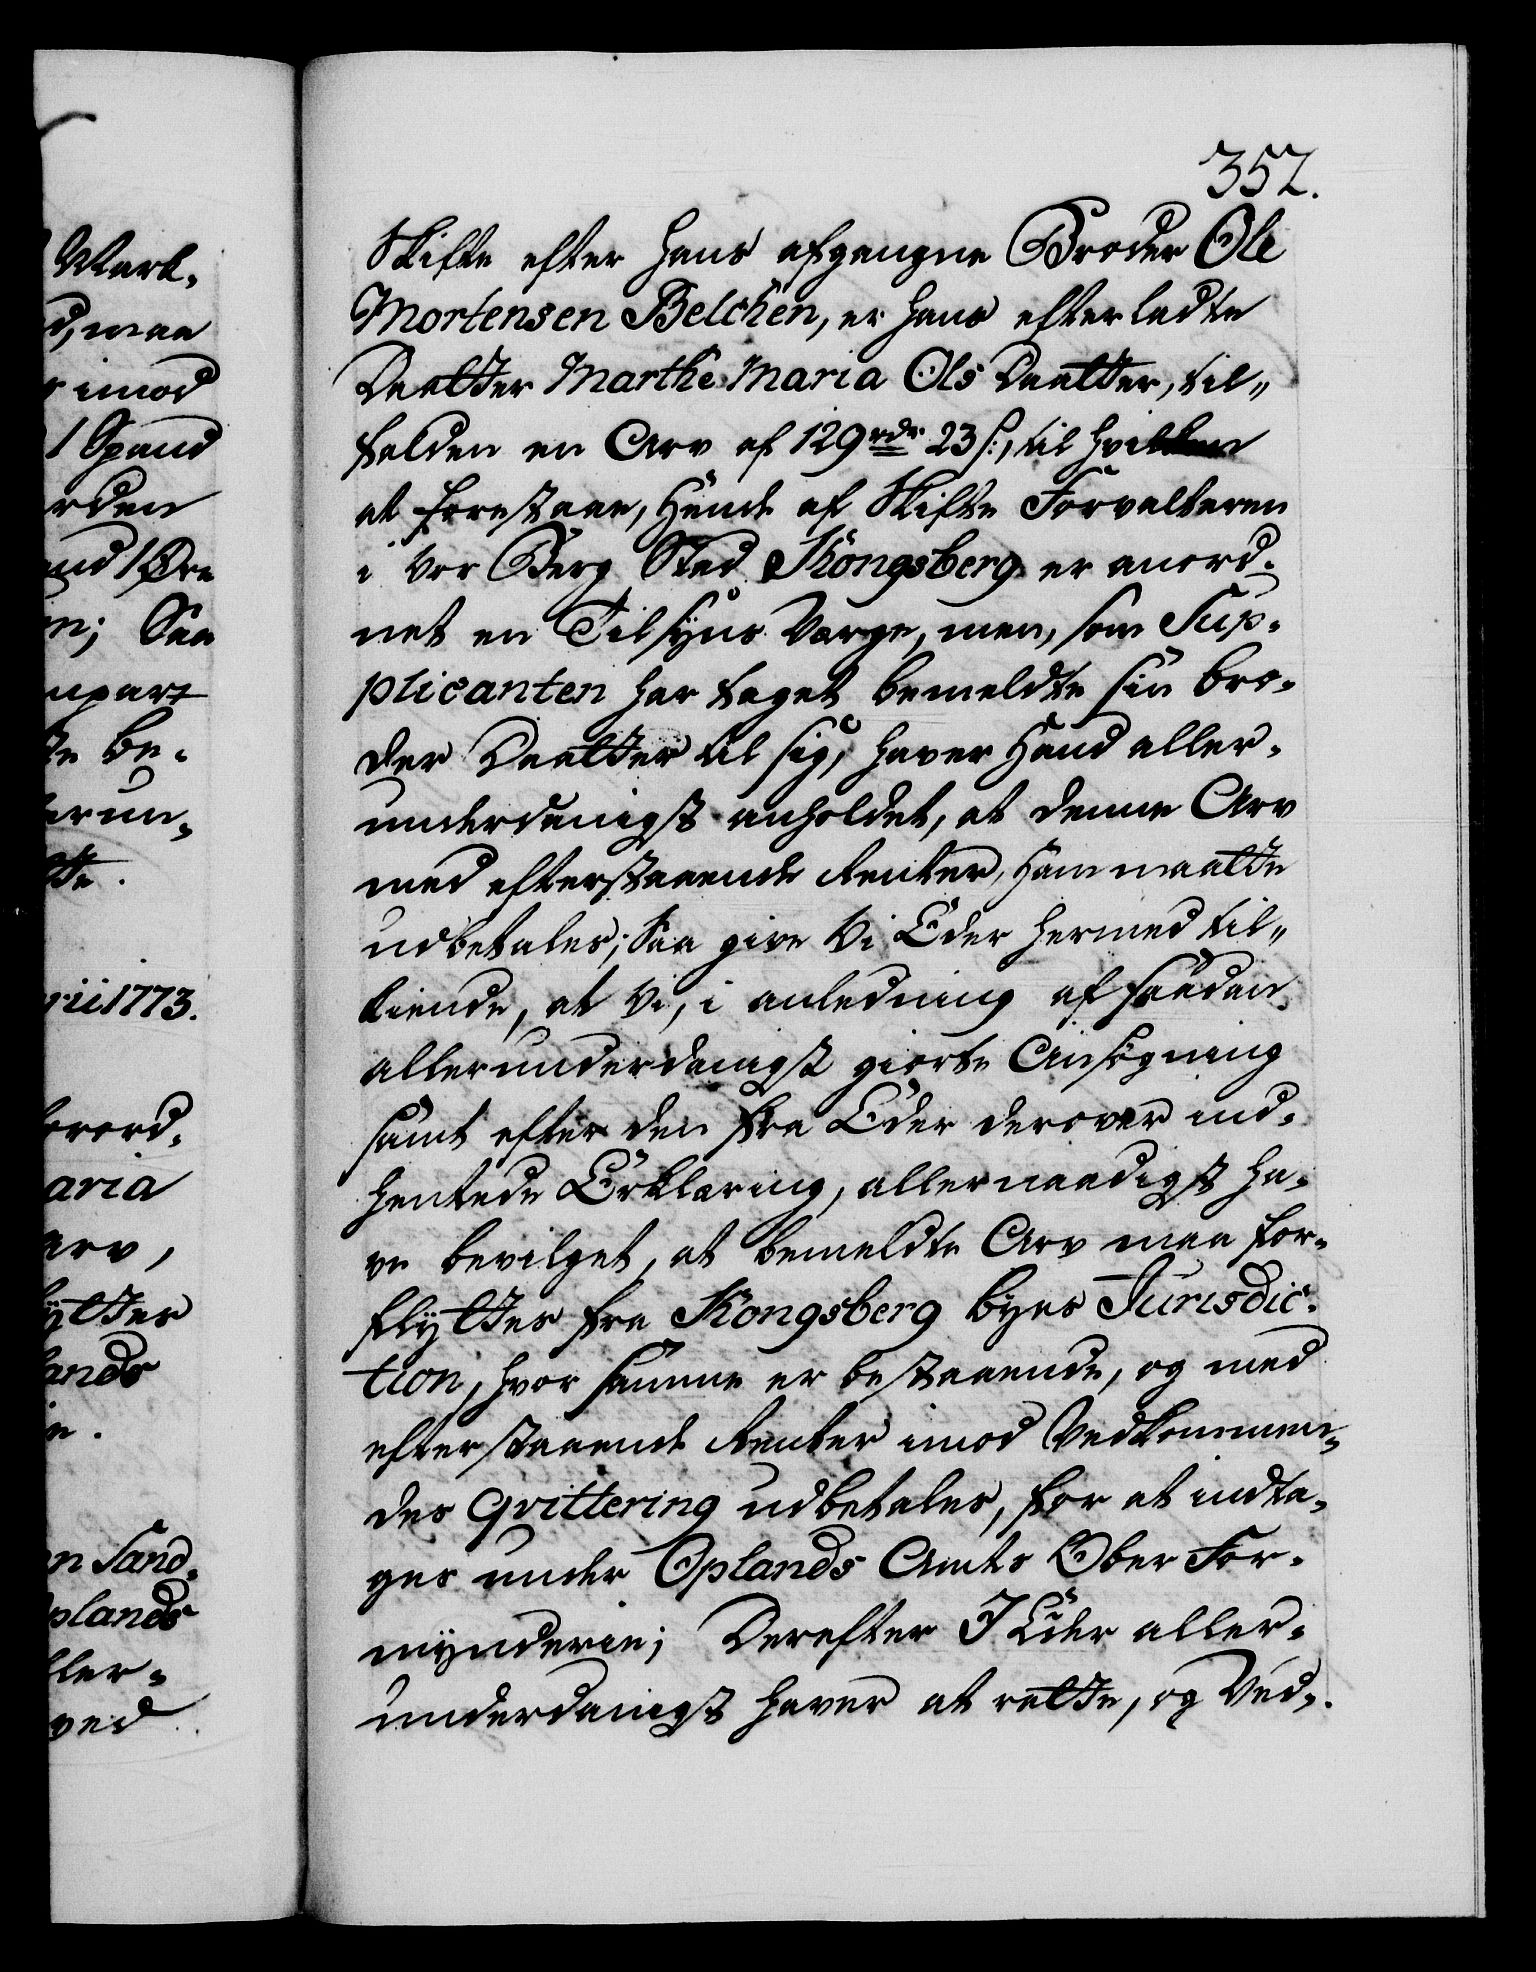 Mark-
d, maa
imod
1 Spand
orden
nd 1 Øre
n; Saa
npart
te be-
erun-
tte.
rii 1773.
orord-
aria
Arv,
ytter
lands
ie.
en Sand-
plands
ller-
ved
352.
Skifte efter hans afgangne Broder Ole
Mortensen Belchen, er hans efterladte
Daatter Marthe Maria Ols Daatter, til-
falden en Arv af 129 rdr 23 s:, til hvilken
at forestaae, hende af Skifte Forvalteren
i vor Berg Stad Kongsberg er anord-
net en Tilsyns Værge, men, som Sup-
plicanten har taget bemeldte sin Bro-
der Daatter til sig, haver hand aller-
underdanigst anholdet, at denne Arv
med efterstaaende Renter, ham maatte
udbetales; Saa give Vi Eder hermed til-
kiende, at Vi, i anledning af saadan
allerunderdanigst giorte Ansøgning
samt efter den fra Eder derover ind-
hentede Erklæring, allernaadigst ha-
ve bevilget, at bemeldte Arv maa for-
flyttes fra Kongsberg byes Jurisdic-
tion, hvor samme er bestaaende, og med
efterstaaende Renter imod Vedkommen-
des Qvittering udbetales, for at indta-
ges under Oplands Amts Ober For-
mynderie; Derefter I Eder aller-
underdanigst haver at rette, og Ved-